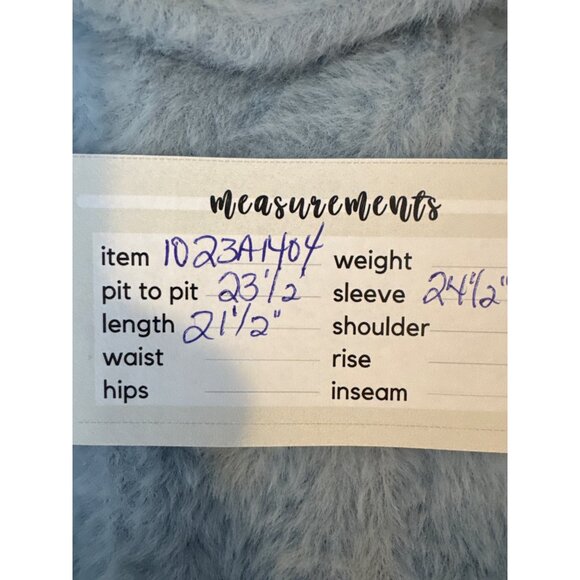 measurements
item 1023A1404 weight
pit to pit 23 1/2 sleeve 24 1/2"
length 21 1/2" shoulder
waist rise
hips inseam